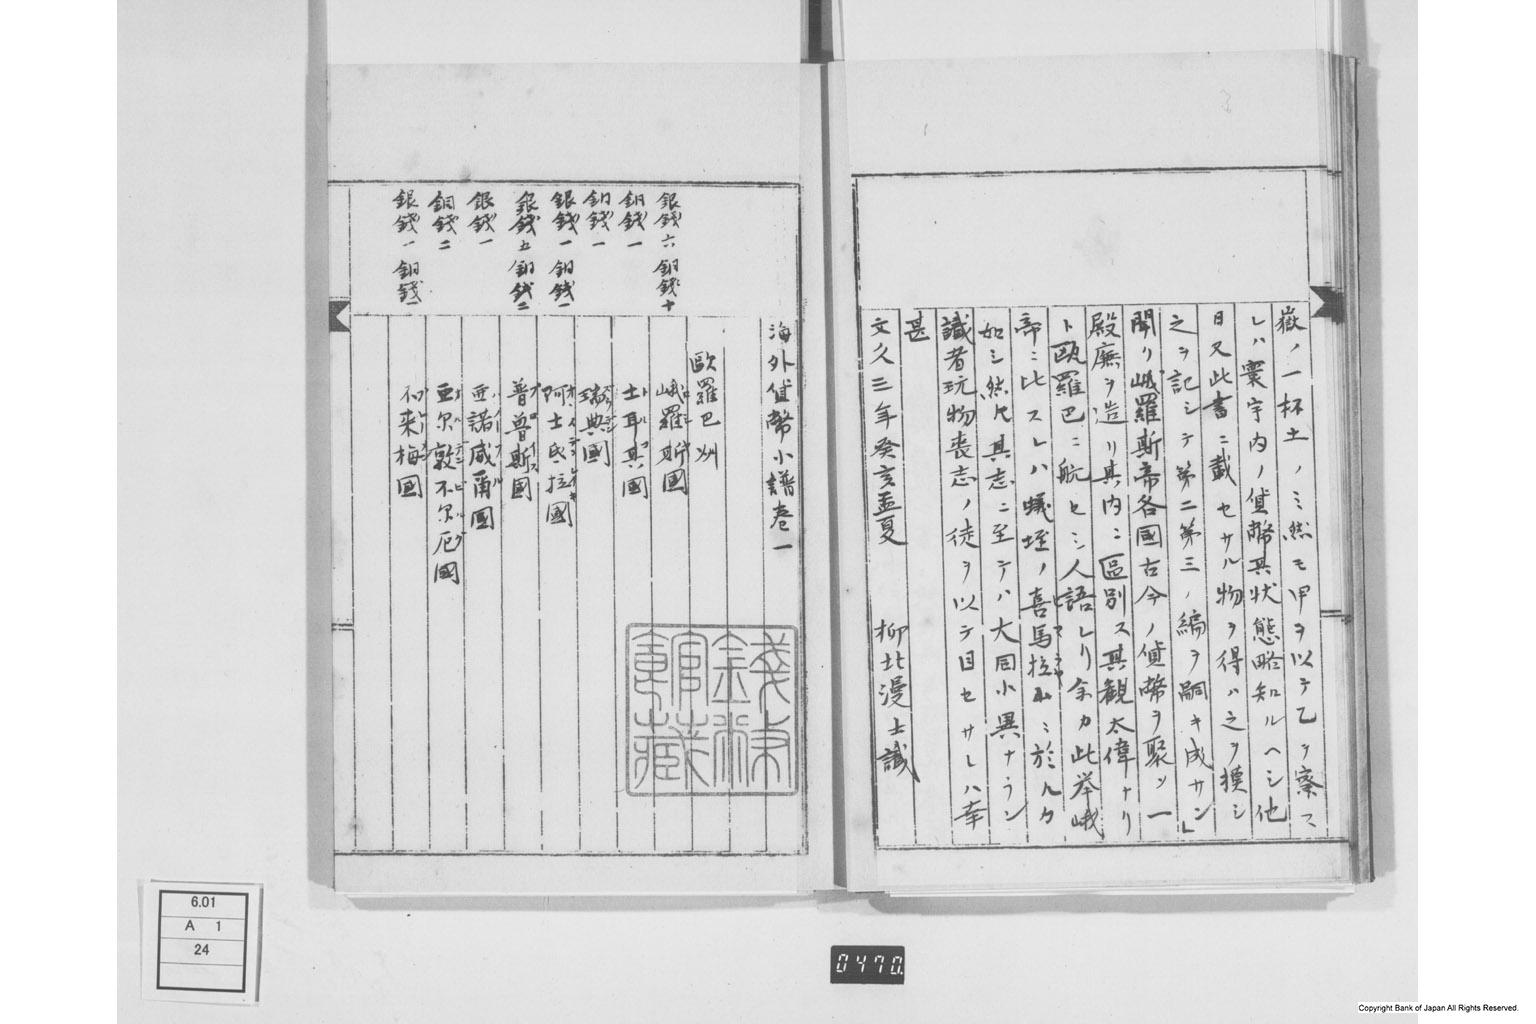 嶽ノ一杯土ノミ然モ甲ヲ以テ乙ヲ察ス
レハ寰宇内ノ貨幣其状態略知ルヘシ他
日又此書ニ載セサル物ヲ得ハ之ヲ摸シ
之ヲ記シテ第二第三ノ編ヲ嗣キ成サン」
聞リ峨羅斯帝各國古今ノ貨幣ヲ聚ツ一
殿廡ヲ造リ其内ニ區別ス其観太偉ナリ
ト歐羅巴ニ航セシ人語レリ余カ此挙峨
帝ニ比スレハ蟻垤ノ喜馬拉ニ於ルカ
如シ然𪜈其志ニ至テハ大同小異ナラン
識者玩物喪志ノ徒ヲ以テ目セサレハ幸
甚
文久三年癸亥孟夏 柳北漫士識
海外貨幣小譜巻一
歐羅巴洲
銀錢六 銅錢十 峨羅斯國
銅錢一 土耳其國
銅錢一 瑞典國
銀錢一 銅錢一 阿士氐拉國
銀錢五 銅錢二 普魯斯國
銀錢一 亜諾威爾國
銅錢二 亜尔敦不尔厄國
銀錢一 銅錢一 不来梅國
錢幣館藏
6.01
A 1
24
0470.
Copyright Bank of Japan All Rights Reserved.